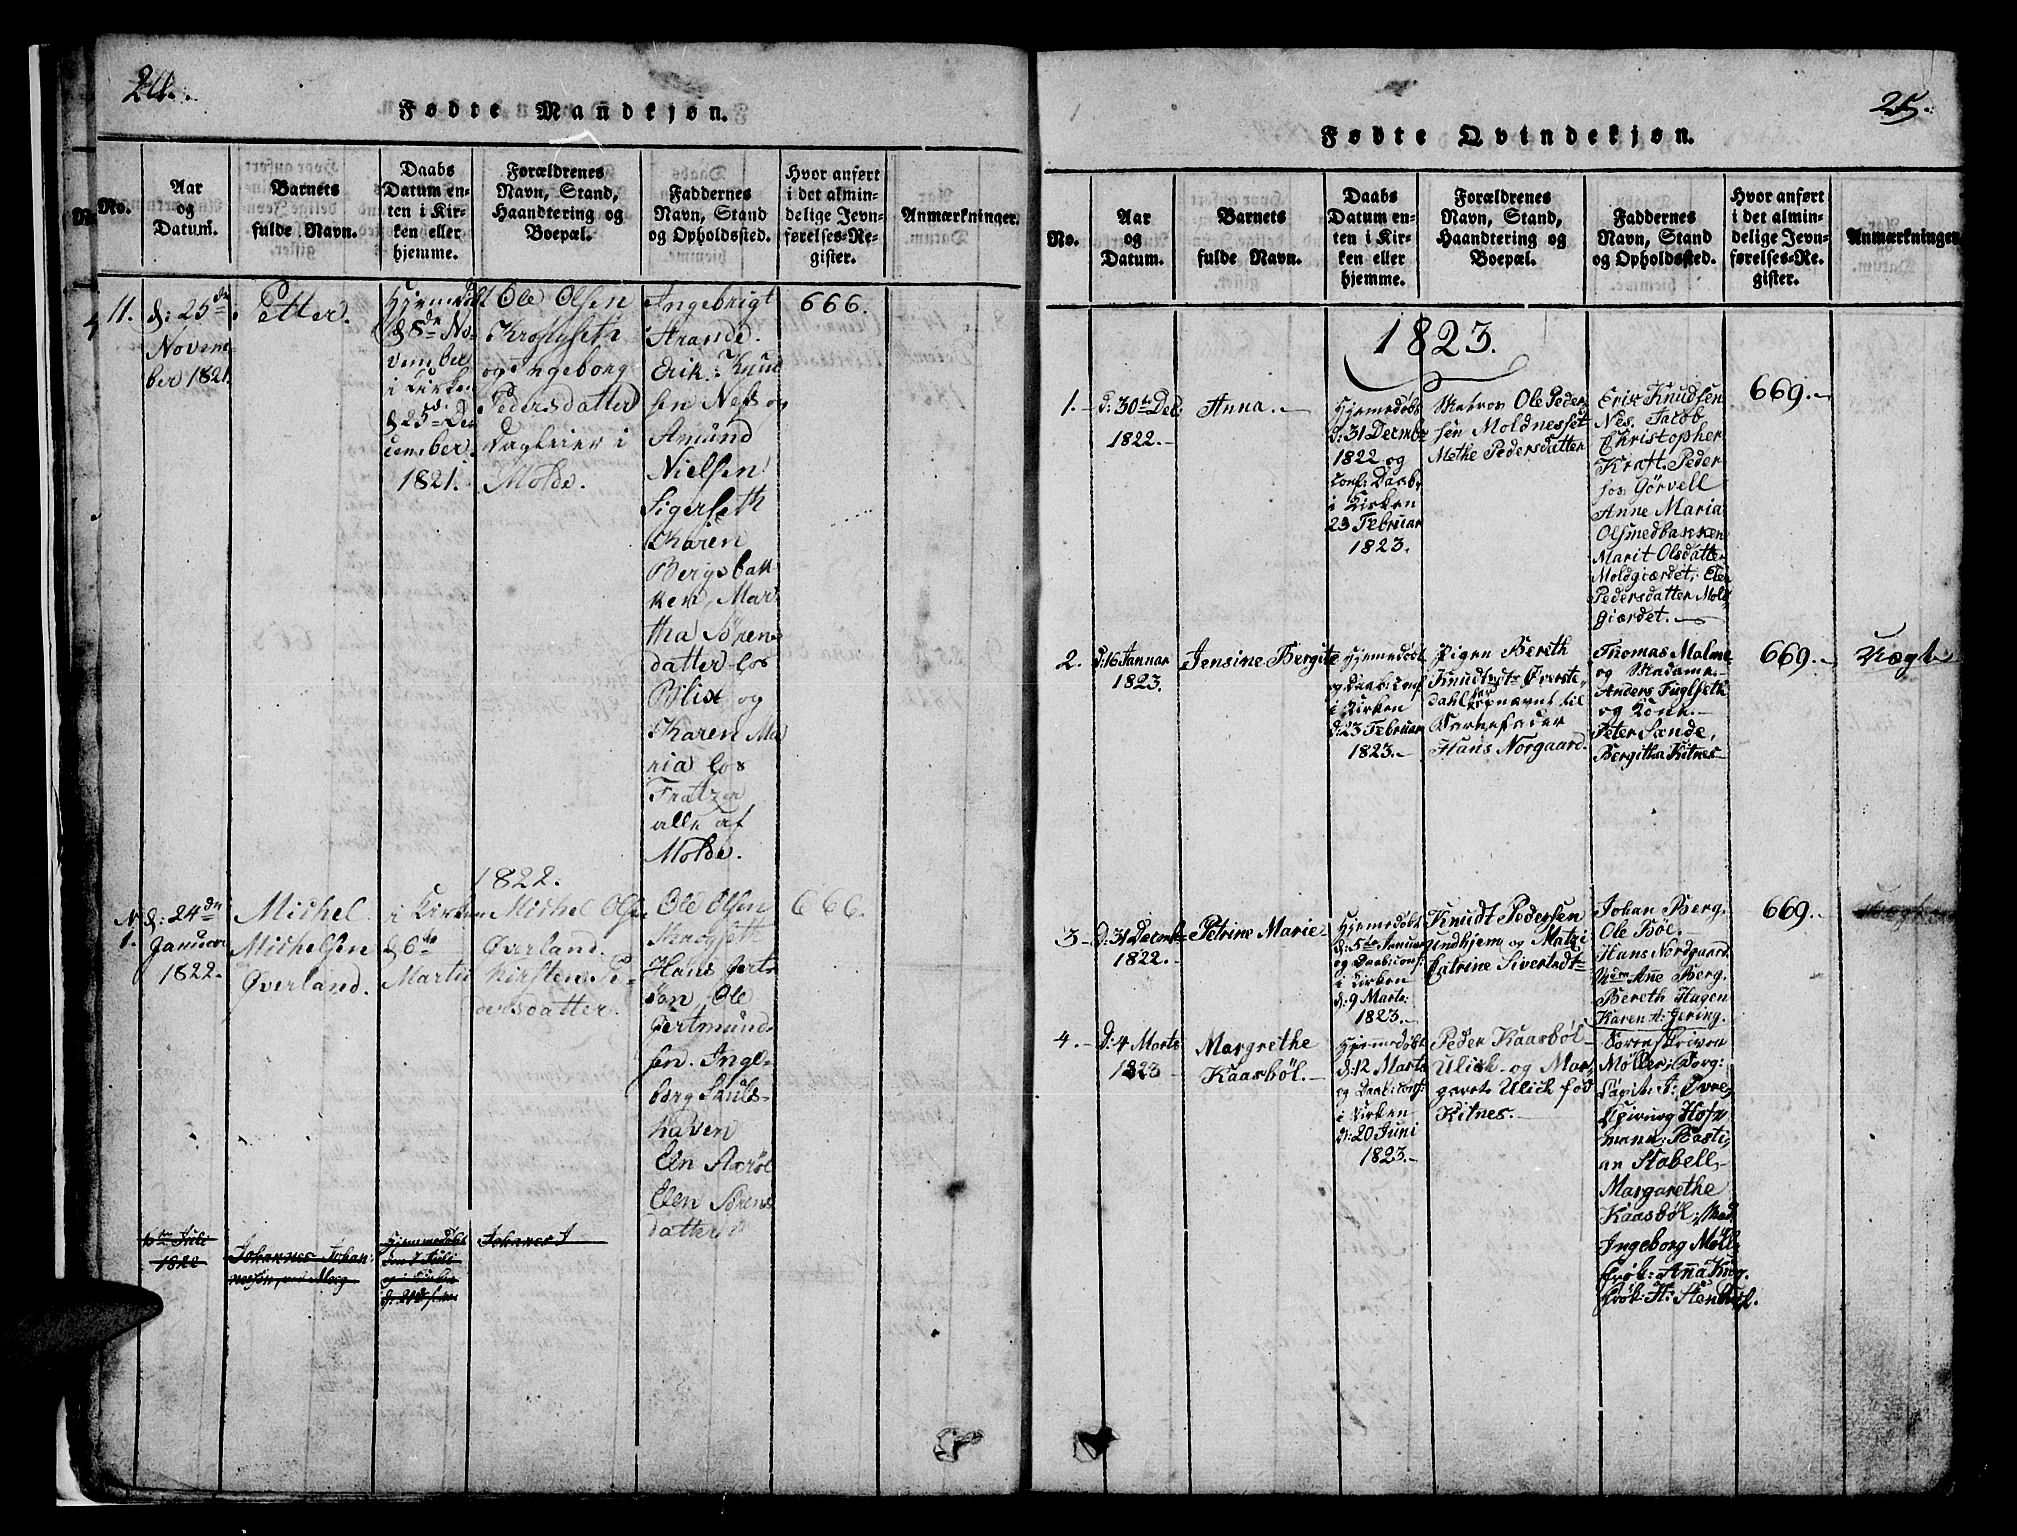 24.
Fødte Mandkjøn.
No.
Aar
og
Datum.
Barnets
fulde Navn.
Daabs
Datum en-
ten i Kir-
ken eller
hjemme.
Forældrenes
Navn, Stand,
Haandtering og
Boepæl.
Faddernes
Navn, Stand
og Opholdssted.
Hvor anført
i det almin-
delige Jevn-
førelses-Re-
gister.
Anmærkninger.
11.
d: 25de
Novem-
ber 1821.
Petter.
Hjemedøbt
d 8de No-
vember
i Kirken
d 25de De-
cember
1821.
Ole Olsen
og Ingeborg
Pedersdatter
Dagleier i
Molde.
Ingebrigt
Strande.
Erik Knud-
sen Nes og
Amund
Nielsen
Sigerseth
Karen
Bergsbak-
ken, Mar-
tha Søren-
datter
Blix og
Karen Ma-
ria
alle af
Molde.
666.
1822.
N
1.
d: 24de
Januar
1822.
Michel
Michelsen
Øverland.
i Kirken
d 6te
Martii
Michel Olsen
Øverland.
Kirsten Pe-
dersdatter.
Ole Olsen
Hans
Ole
Gertmund-
sen. Inge-
borg Skuls-
haven
Elen Aarøe
Elen Sørens-
datter
666.
6te Juli
1822
Johannes Johan-
Hjemmedøbt
den 7 Juli
og i Kirken
Johanes J
25.
Fødte Qvindekjøn.
No.
Aar
og
Datum.
Barnets
fulde Navn.
Daabs
Datum en-
ten i Kir-
ken eller
hjemme.
Forældrenes
Navn, Stand,
Haandtering og
Boepæl.
Faddernes
Navn, Stand
og Opholdssted.
Hvor anført
i det almin-
delige Jevn-
førelses-Re-
gister.
Anmærkninger
1823.
1.
d: 30te Dec.
1822.
Anna.
Hjemedøbt
d: 31 Decmbr
1822 og
conf: Daab
i Kirken
23 Februar
1823.
Matros Ole Peder
sen Moldnesset
Methe Pedersdatter
Eric Knudsen
Nes. Jacob
Christopher
Kraft. Peder
Gørvell
Anne Maria
Olsmedbakken
Marit Olsdatter
Moldgiærdet, Elen
Pedersdatter Mold-
giærdet.
669.
2.
d: 16 Januar
1823.
Jensine Bergite
Hjemedøbt
og Daab: conf
i Kirken
d: 23 Februar
1823.
Pigen Bereth
Knudsdtr Øverste-
dahl opnævnt til
Barnefader
Hans Norgaard.
Thomas Malme
og Madame
Anders Fuglseth
og Kone.
Peter Sande,
Bergitha Kitnes
669.
3
d: 31 Decmbr
1822.
Petrine Marie
Hjemedøbt
d: 5te Januar
og Daab: conf
i Kirken
d: 9 Marts
1823.
Knudt Pedersen
indhjem og Matzi
Catrine Sivertsdtr
Johan Berg.
Ole Böe.
Hans Nordgaard
Mdm Ane Berg.
Bereth Hagen
Karen A: Gering.
669.
4.
d: 4 Marts
1823
Margrethe
Kaasböl.
Hjemedøbt
d: 12 Marts
og Daab: conf
i Kirken
d: 20 Juni
1823.
Peder Kaasböl
Ulich og Mar-
garete Ulich fød
Kitnes.
Sorenskriver
Möller,
Hof-
mand: Basti-
an Stabell,
Margarethe
Kaasböl, Mad.
Ingeborg Möll
Frök: Ana Krog.
Frök: H: